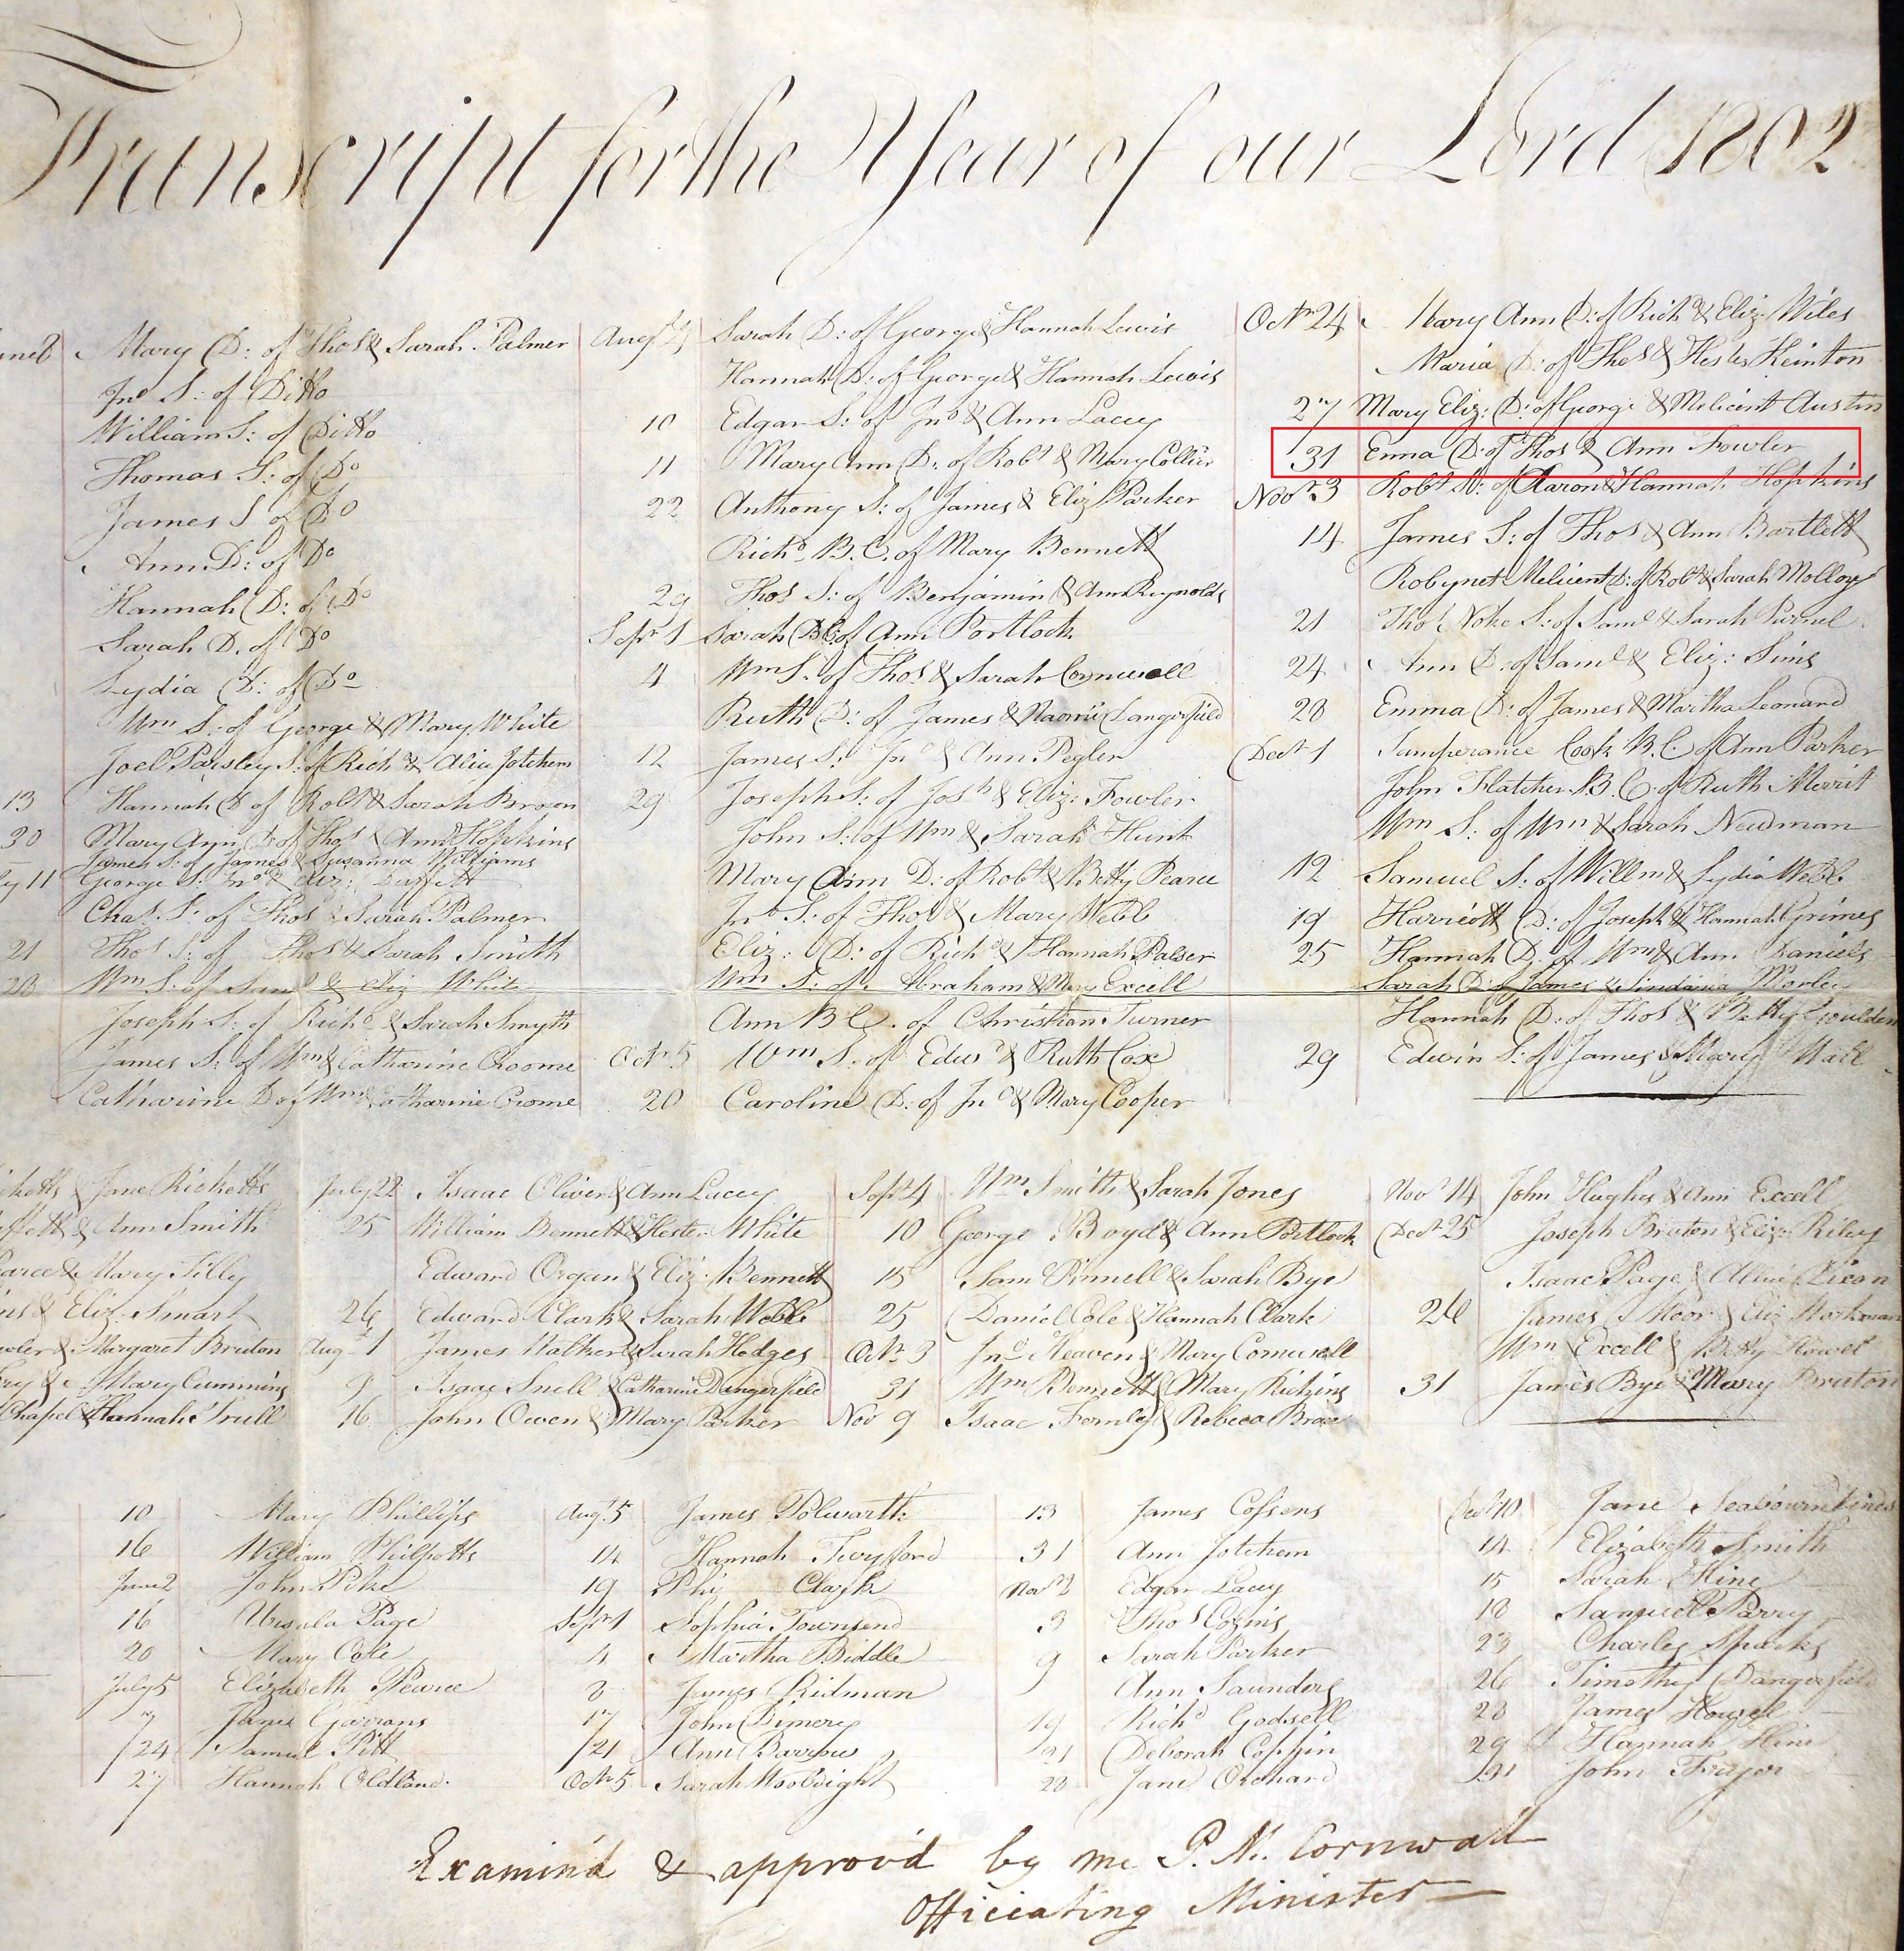 Transcript for the Year of our Lord 1802
Mary D: of Thos & Sarah Palmer
Jno S: of Ditto
William S: of Ditto
Thomas S: of Do
James S of Do
Ann D: of Do
Hannah D: of Do
Sarah D. of Do
Lydia D: of Do
Wm S: of George & Mary White
Joel Paisley S: of Rich & Alice Jotchem
13 Hannah D of Robt & Sarah Brown
30 Mary Ann D: of Thos & Ann Hopkins
James S: of James & Susanna Williams
11 George S: Jno & Eliz:
Chas. S: of Thos & Sarah Palmer
21 Thos S: of Thos & Sarah Smith
28 Wm S: of Saml & Eliz White
Joseph S: of Richd & Sarah Smyth
James S: of Wm & Catharine Croome
Catharine D of Wm & Catharine Crome
Augt Sarah D: of George & Hannah Lewis
Hannah D: of George & Hannah Lewis
10 Edgar S: of Jno & Ann Lacey
11 Mary Ann D: of Robt & Mary Collier
22 Anthony S: of James & Eliz Parker
Richd B.C. of Mary Bennett
29 Thos S: of Benjamin & Ann Reynolds
Sepr 1 Sarah BC of Ann Portlock
4 Wm S. of Thos & Sarah Cornwall
Ruth D: of James & Naomi Dangerfield
12 James S: Jno & Ann Pegler
29 Joseph S: of Josh & Eliz: Fowler
John S: of Wm & Sarah Hunt
Mary Ann D: of Robt & Betty Pearce
Jno S: of Thos & Mary Webb
Eliz: D: of Richd & Hannah Palser
Wm S: of Abraham & Mary Excell
Ann BC. of Christian Turner
Octr 5 Wm S: of Edwd & Ruth Cox
20 Caroline D: of Jno & Mary Cooper
Octr 24 Mary Ann D: of Rich & Eliz: Wiles
Maria D: of Thos & Hester Heinton
27 Mary Eliz: D: of George & Melicent Austin
31 Emma D: of Thos & Ann Fowler
Novr 3 Robt S: of Aaron & Hannah Hopkins
14 James S: of Thos & Ann Bartlett
Robynet Melicent D: of Robt & Sarah Molloy
21 Thos Noke S: of Saml & Sarah Purnel
24 Ann D: of Saml & Eliz: Sims
28 Emma D: of James & Martha Leonard
Decr 1 Temperance Cook B.C. of Ann Parker
John Flatcher B.C. of Ruth Merrit
Wm S: of Wm & Sarah Newman
12 Samuel S: of Willm & Lydia Webb
19 Harriott D: of Joseph & Hannah Grimes
25 Hannah D. of Wm & Ann Daniels
Sarah D: of James & Morley
Hannah D: of Thos & Betty Goulden
29 Edwin S: of James & Mary Wall
Ricketts & Jane Ricketts
& Ann Smith
& Mary Tilly
& Eliz: Smart
& Margaret Bruton
& Mary Cumming
Chapel & Hannah Trull
July 22 Isaac Oliver & Ann Lacey
25 William Bennett & Hester White
Edward Organ & Eliz: Bennett
26 Edward Clark & Sarah Webb
Augt 1 James Walker & Sarah Hodges
9 Isaac Snell & Catharine Dangerfield
16 John Owen & Mary Parker
Sepr 4 Wm Smith & Sarah Jones
10 George Boyd & Ann Portlock
15 Saml Pinnell & Sarah Bye
25 Daniel Cole & Hannah Clark
Octr 3 Jno Heaven & Mary Cornwall
31 Wm Bennett & Mary
Nov 9 Isaac Fernley & Rebecca Brace
Novr 14 John Hughes & Ann Excell
Decr 25 Joseph Bruton & Eliz: Riley
Isaac Page & Dixon
26 James Moor & Eliz Workman
Wm Excell & Betty Howel
31 James Bye & Mary Bruton
10 Mary Phillips
16 William Philpotts
June 2 John Pike
16 Ursula Page
20 Mary Cole
July 5 Elizabeth Pearce
7 James Garrans
24 Samuel Pitt
27 Hannah Oldland
Augt 5 James Polworth
14 Hannah Twyford
19 Phi Clark
Sepr 1 Sophia Townsend
4 Martha Biddle
8 James Ridman
17 John Dimery
21 Ann Barrow
Octr 5 Sarah Woolwright
13 James Cossens
31 Ann Jotchem
Novr 2 Edgar Lacey
3 Thos Collins
9 Sarah Parker
Ann Saunders
19 Richd Godsell
21 Deborah Coppin
28 Jane Orchard
Decr 10 Jane
14 Elizabeth Smith
15 Sarah Hine
18 Samuel Parry
23 Charles Sparks
26 Timothy Dangerfield
28 James Howell
29 Hannah Hine
31 John
Examin'd & approv'd by me P. M. Cornwall
Officiating Minister